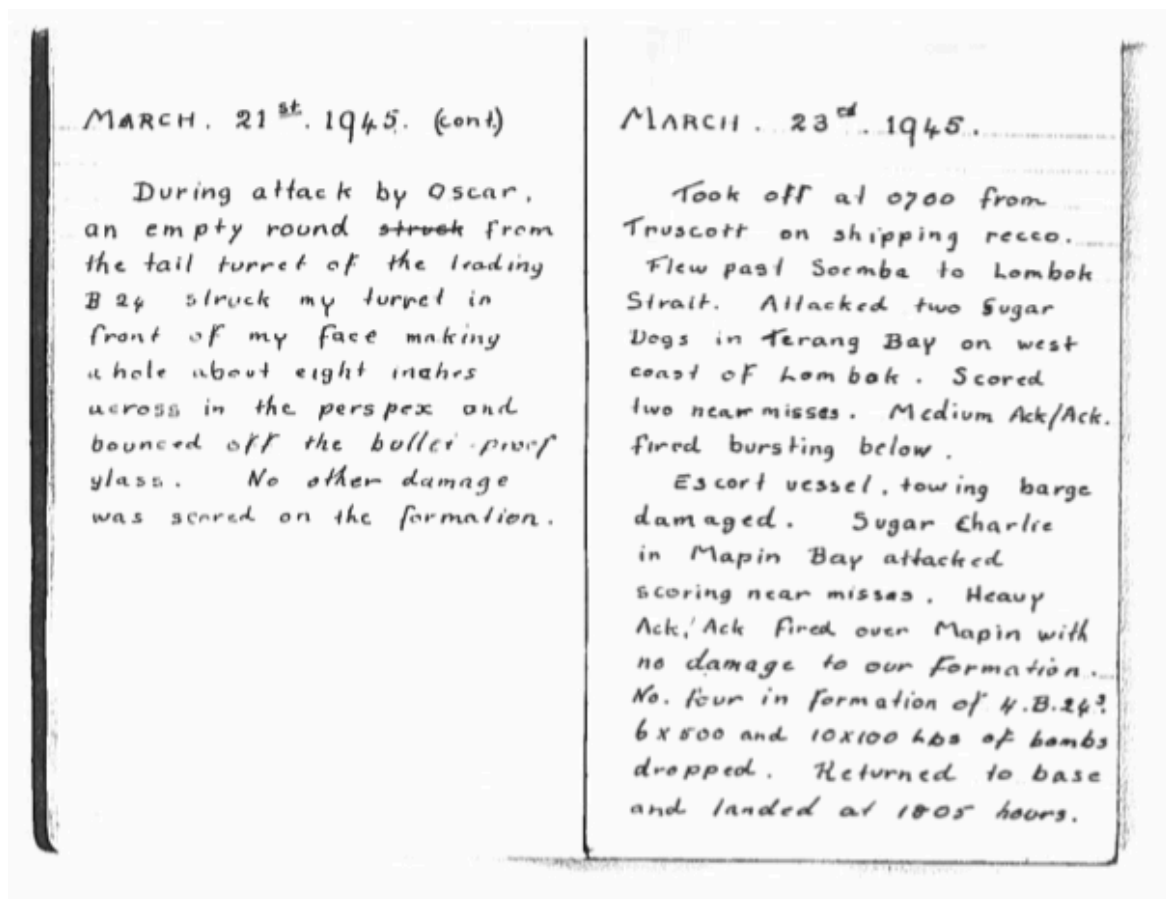 MARCH. 21st. 1945. (cont)
During attack by Oscar,
an empty round struck from
the tail turret of the leading
B 24 struck my turret in
front of my face making
a hole about eight inches
across in the perspex and
bounced off the bullet-proof
glass. No other damage
was scored on the formation.
MARCH. 23rd. 1945.
Took off at 0700 from
Truscott on shipping recco.
Flew past Soemba to Lombok
Strait. Attacked two Sugar
Dogs in Terang Bay on west
coast of Lombok. Scored
two near misses. Medium Ack/Ack.
fired bursting below.
Escort vessel, towing barge
damaged. Sugar Charlie
in Mapin Bay attacked
scoring near misses. Heavy
Ack/Ack fired over Mapin with
no damage to our formation.
No. four in formation of 4.B.24s.
6 x 500 and 10x100 lbs of bombs
dropped. Returned to base
and landed at 1805 hours.